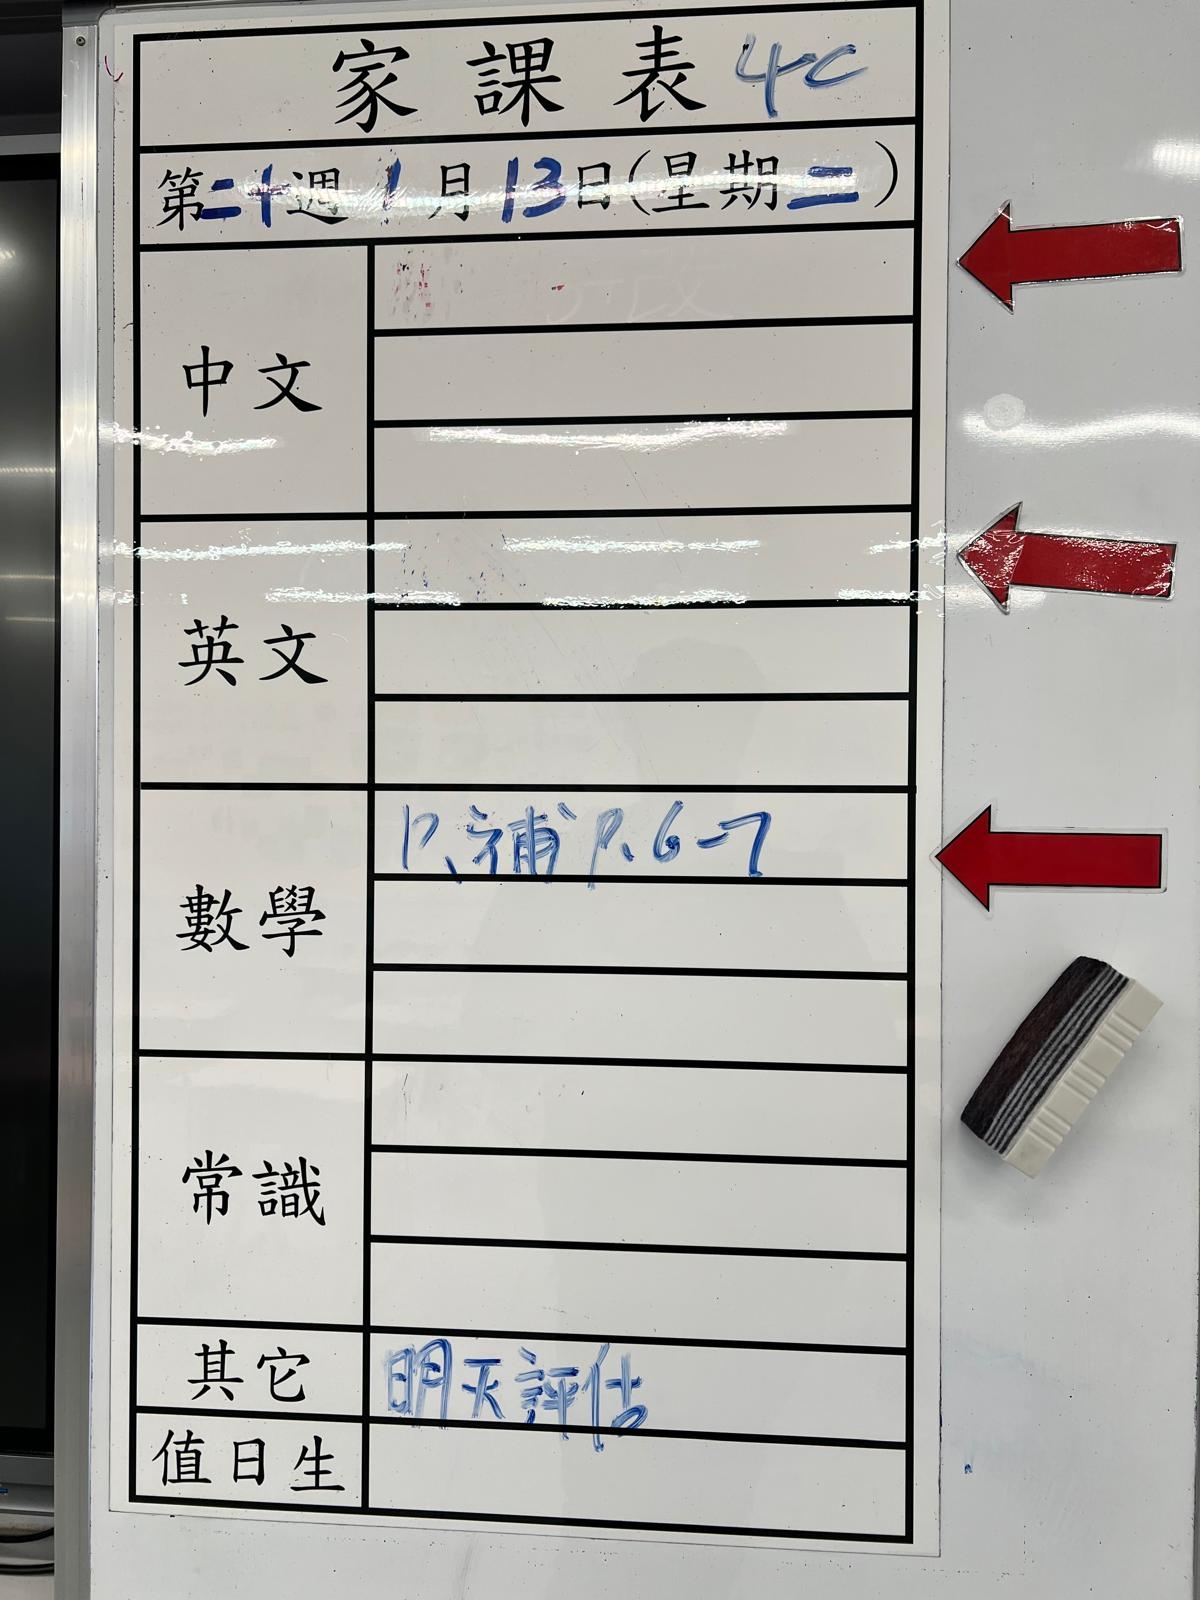 家課表 4C
第二十週 1月13日(星期二)
中文
英文
數學 P.補 P.6-7
常識
其它 明天評估
值日生